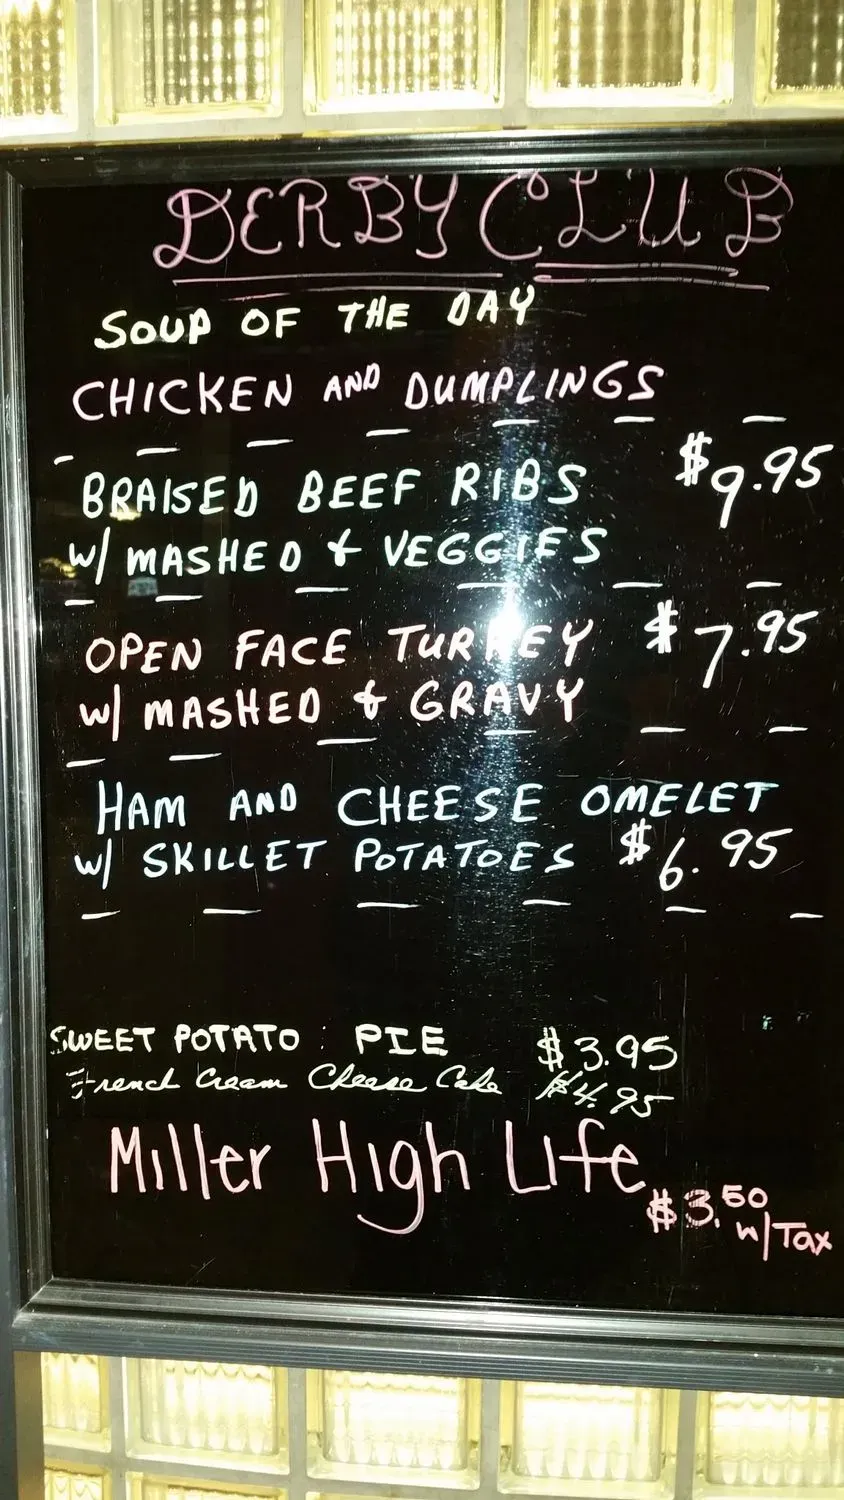 DERBY CLUB
SOUP OF THE DAY
CHICKEN AND DUMPLINGS
BRAISED BEEF RIBS $9.95
w/ MASHED & VEGGIES
OPEN FACE TURKEY $7.95
w/ MASHED & GRAVY
HAM AND CHEESE OMELET
w/ SKILLET POTATOES $6.95
SWEET POTATO : PIE $3.95
French Cream Cheese Cake $4.95
Miller High Life
$3.50
w/Tax